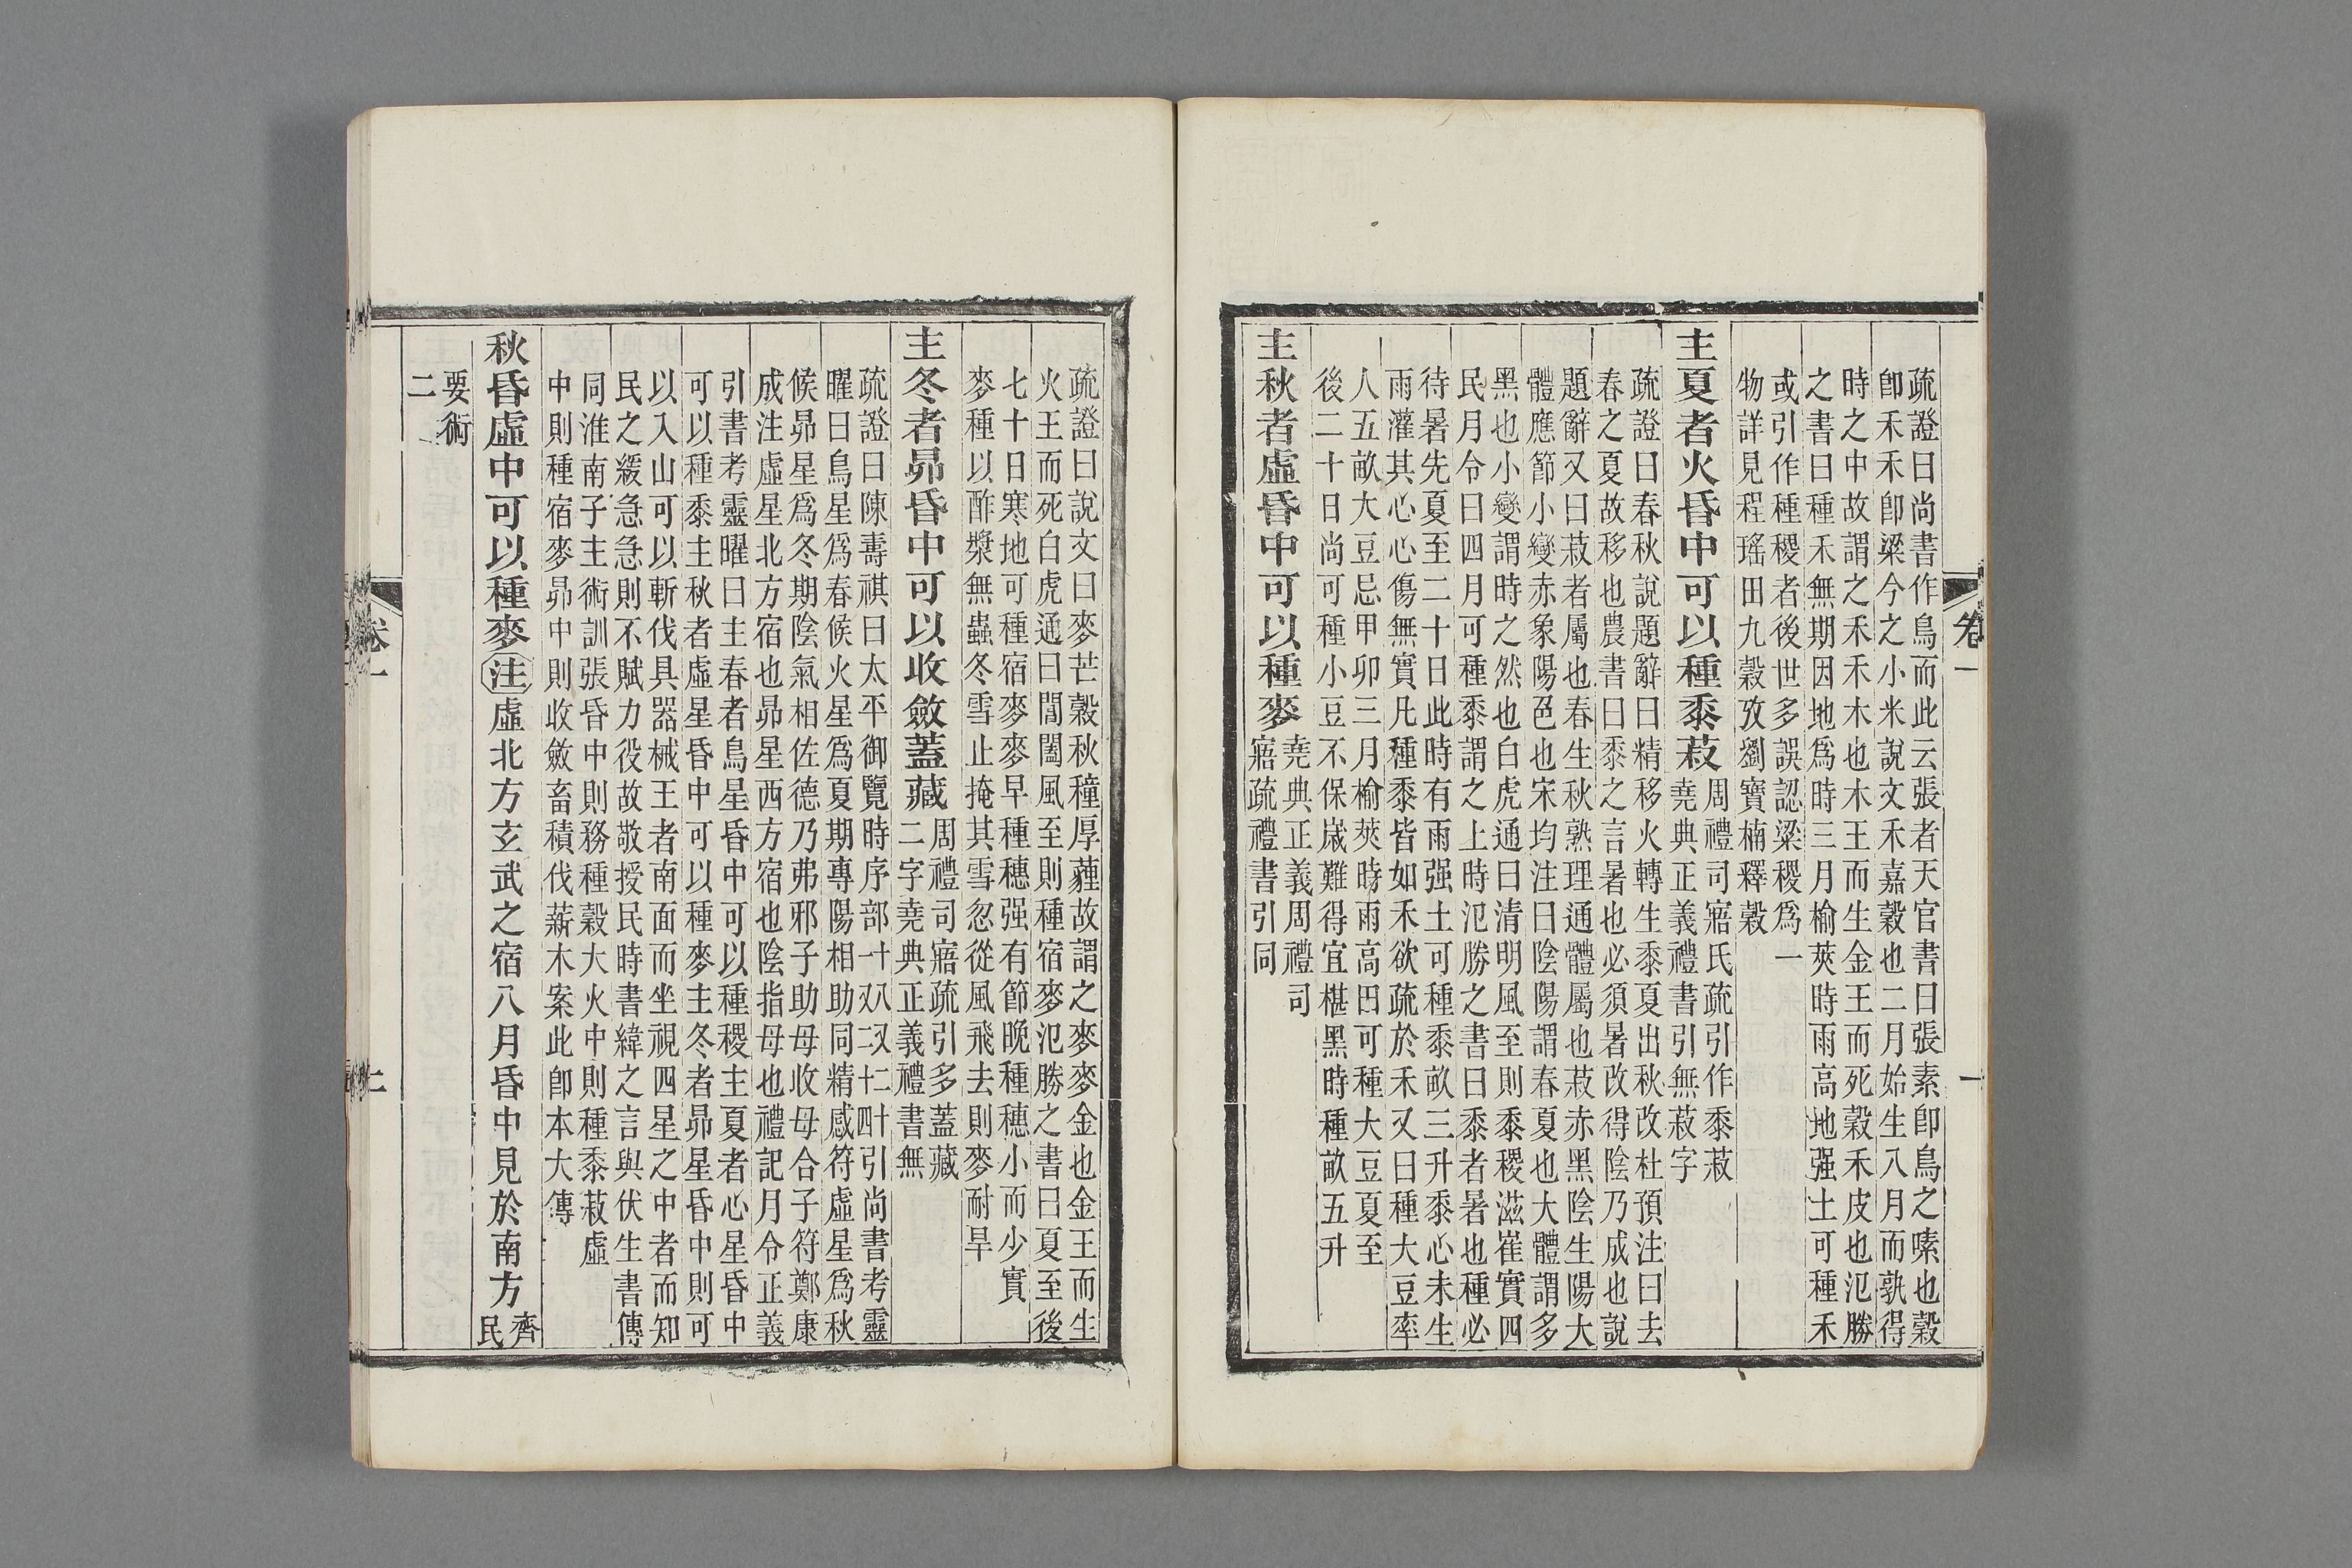 疏證曰尚書作鳥而此云張者天官書曰張素卽鳥之嗉也榖
卽禾禾卽粱今之小米說文禾嘉榖也二月始生八月而孰得
時之中故謂之禾禾木也木王而生金王而死榖禾皮也氾勝
之書曰種禾無期因地爲時三月榆莢時雨高地强土可種禾
或引作種稷者後世多誤認粱稷爲一
物詳見程瑤田九穀攷劉寶楠釋穀
主夏者火昏中可以種黍菽
周禮司寤氏疏引作黍菽
堯典正義禮書引無菽字
疏證曰春秋說題辭曰精移火轉生黍夏出秋改杜預注曰去
春之夏故移也農書曰黍之言暑也必須暑改得陰乃成也說
題辭又曰菽者屬也春生秋熟理通體屬也菽赤黑陰生陽大
體應節小變赤象陽色也宋均注曰陰陽謂春夏也大體謂多
黑也小變謂時之然也白虎通曰清明風至則黍稷滋崔實四
民月令曰四月可種黍謂之上時氾勝之書曰黍者暑也種必
待暑先夏至二十日此時有雨强土可種黍畝三升黍心未生
雨灌其心心傷無實凡種黍皆如禾欲疏於禾又曰種大豆率
人五畝大豆忌甲卯三月榆莢時雨高田可種大豆夏至
後二十日尚可種小豆不保歲難得宜椹黑時種畝五升
主秋者虛昏中可以種麥
堯典正義周禮司
寤疏禮書引同
卷一
一
疏證曰說文曰麥芒穀秋穜厚薶故謂之麥麥金也金王而生
火王而死白虎通曰閶闔風至則種宿麥氾勝之書曰夏至後
七十日寒地可種宿麥麥早種穗强有節晚種穗小而少實
麥種以酢漿無蟲冬雪止掩其雪忽從風飛去則麥耐旱
主冬者昴昏中可以收斂蓋藏
周禮司寤疏引多蓋藏
二字堯典正義禮書無
疏證曰陳壽祺曰太平御覽時序部十八又二十四引尚書考靈
曜曰鳥星爲春候火星爲夏期專陽相助同精感符虛星爲秋
候昴星爲冬期陰氣相佐德乃弗邪子助母收母合子符鄭康
成注虛星北方宿也昴星西方宿也陰指母也禮記月令正義
引書考靈曜曰主春者鳥星昏中可以種稷主夏者心星昏中
可以種黍主秋者虛星昏中可以種麥主冬者昴星昏中則可
以入山可以斬伐具器械王者南面而坐視四星之中者而知
民之緩急急則不賦力役故敬授民時書緯之言與伏生書傳
同淮南子主術訓張昏中則務種穀大火中則種黍菽虛
中則種宿麥昴中則收斂畜積伐薪木案此卽本大傳
秋昏虛中可以種麥注虛北方玄武之宿八月昏中見於南方
齊
民
要術
二
卷一